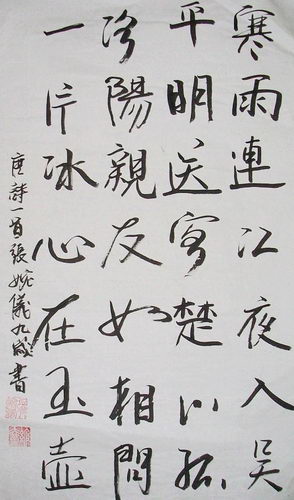 寒雨連江夜入吴
平明送客楚山孤
洛陽親友如相問
一片冰心在玉壺
唐詩一首張婉儀九歲書